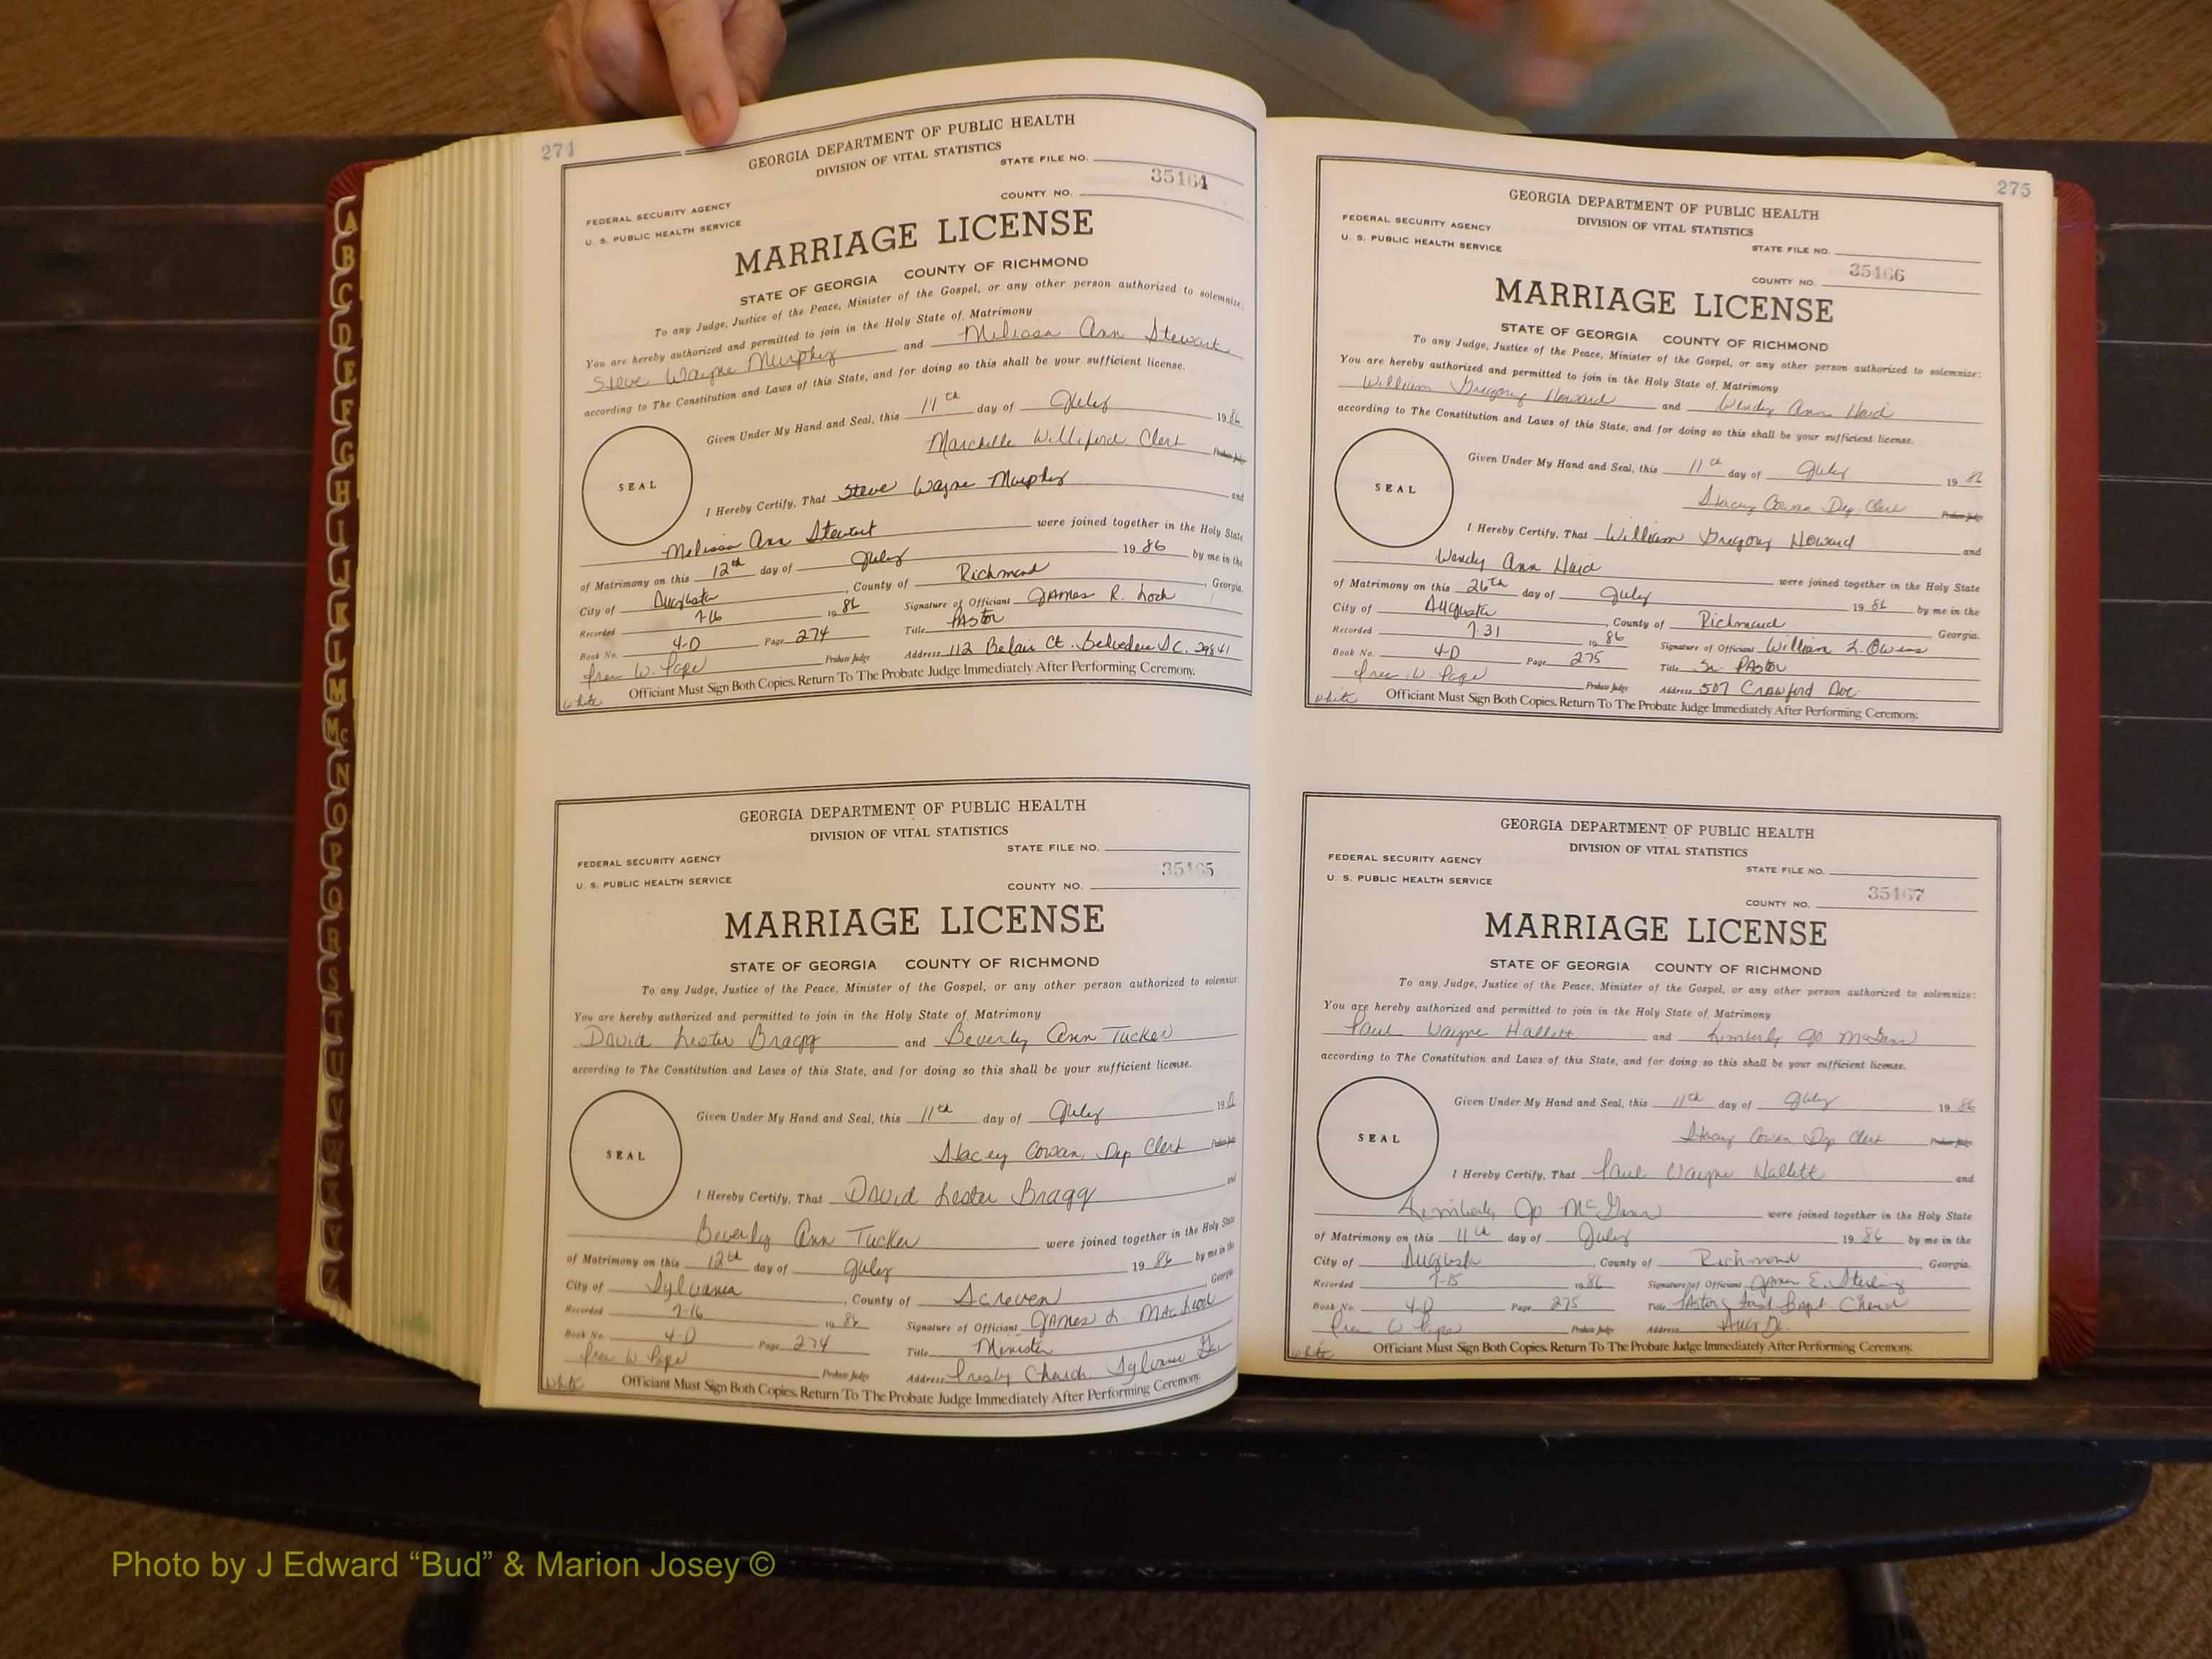 274
GEORGIA DEPARTMENT OF PUBLIC HEALTH
DIVISION OF VITAL STATISTICS
STATE FILE NO.
35164
FEDERAL SECURITY AGENCY
U. S. PUBLIC HEALTH SERVICE
COUNTY NO.
MARRIAGE LICENSE
STATE OF GEORGIA COUNTY OF RICHMOND
To any Judge, Justice of the Peace, Minister of the Gospel, or any other person authorized to solemnize:
You are hereby authorized and permitted to join in the Holy State of Matrimony
Steve Wayne Murphy and Melissa Ann Stewart
according to The Constitution and Laws of this State, and for doing so this shall be your sufficient license.
Given Under My Hand and Seal, this 11th day of July 1986
Marchelle Williford Clerk Probate Judge
SEAL
I Hereby Certify, That Steve Wayne Murphy and
Melissa Ann Stewart were joined together in the Holy State
of Matrimony on this 12th day of July 1986 by me in the
City of Augusta, County of Richmond, Georgia.
Recorded 7-16 1986 Signature of Officiant James R. Loch
Book No. 4-D Page 274 Title Pastor
W. Pope Probate Judge Address 112 Belair Ct. Belvedere S.C. 29841
White Officiant Must Sign Both Copies. Return To The Probate Judge Immediately After Performing Ceremony.
GEORGIA DEPARTMENT OF PUBLIC HEALTH
DIVISION OF VITAL STATISTICS
STATE FILE NO.
35165
FEDERAL SECURITY AGENCY
U. S. PUBLIC HEALTH SERVICE
COUNTY NO.
MARRIAGE LICENSE
STATE OF GEORGIA COUNTY OF RICHMOND
To any Judge, Justice of the Peace, Minister of the Gospel, or any other person authorized to solemnize:
You are hereby authorized and permitted to join in the Holy State of Matrimony
David Lester Bragg and Beverly Ann Tucker
according to The Constitution and Laws of this State, and for doing so this shall be your sufficient license.
Given Under My Hand and Seal, this 11th day of July 198
Stacey Cowan, Dep Clerk Probate Judge
SEAL
I Hereby Certify, That David Lester Bragg and
Beverly Ann Tucker were joined together in the Holy State
of Matrimony on this 12th day of July 1986 by me in the
City of Sylvania, County of Screven Georgia
Recorded 7-16 1986 Signature of Officiant James L. MacLeod
Book No. 4-D Page 274 Title Minister
W Pope Probate Judge Address Presby Church, Sylvania Ga.
White Officiant Must Sign Both Copies. Return To The Probate Judge Immediately After Performing Ceremony.
275
GEORGIA DEPARTMENT OF PUBLIC HEALTH
DIVISION OF VITAL STATISTICS
STATE FILE NO.
35166
FEDERAL SECURITY AGENCY
U. S. PUBLIC HEALTH SERVICE
COUNTY NO.
MARRIAGE LICENSE
STATE OF GEORGIA COUNTY OF RICHMOND
To any Judge, Justice of the Peace, Minister of the Gospel, or any other person authorized to solemnize:
You are hereby authorized and permitted to join in the Holy State of Matrimony
William Gregory Howard and Wendy Ann Haid
according to The Constitution and Laws of this State, and for doing so this shall be your sufficient license.
Given Under My Hand and Seal, this 11th day of July 1986
Stacey Cowan Dep. Clerk Probate Judge
SEAL
I Hereby Certify, That William Gregory Howard and
Wendy Ann Haid were joined together in the Holy State
of Matrimony on this 26th day of July 1986 by me in the
City of Augusta, County of Richmond Georgia.
Recorded 7-31 1986 Signature of Officiant William L. Owens
Book No. 4-D Page 275 Title Sr. Pastor
W. Pope Probate Judge Address 507 Crawford Ave
White Officiant Must Sign Both Copies. Return To The Probate Judge Immediately After Performing Ceremony.
GEORGIA DEPARTMENT OF PUBLIC HEALTH
DIVISION OF VITAL STATISTICS
STATE FILE NO.
35167
FEDERAL SECURITY AGENCY
U. S. PUBLIC HEALTH SERVICE
COUNTY NO.
MARRIAGE LICENSE
STATE OF GEORGIA COUNTY OF RICHMOND
To any Judge, Justice of the Peace, Minister of the Gospel, or any other person authorized to solemnize:
You are hereby authorized and permitted to join in the Holy State of Matrimony
Paul Wayne Hallett and Kimberly Jo
according to The Constitution and Laws of this State, and for doing so this shall be your sufficient license.
Given Under My Hand and Seal, this 11th day of July 1986
Stacey Cowan, Dep Clerk Probate Judge
SEAL
I Hereby Certify, That Paul Wayne Hallett and
Kimberly Jo were joined together in the Holy State
of Matrimony on this 11th day of July 1986 by me in the
City of Augusta, County of Richmond Georgia.
Recorded 7-15 1986 Signature of Officiant James E. Sterling
Book No. 4-D Page 275 Title Pastor, Bapt. Church
W Pope Probate Judge Address Aug Ga.
White Officiant Must Sign Both Copies. Return To The Probate Judge Immediately After Performing Ceremony.
A
B
C
D
E
F
G
H
I
J
K
L
M
Mc
N
O
P
Q
R
S
T
U
V
W
Photo by J Edward “Bud” & Marion Josey ©